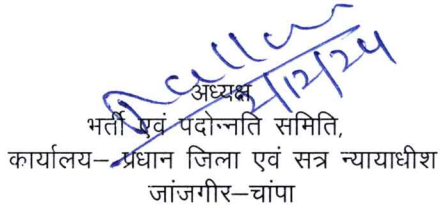 2/12/24
अध्यक्ष
भर्ती एवं पदोन्नति समिति,
कार्यालय– प्रधान जिला एवं सत्र न्यायाधीश
जांजगीर–चांपा